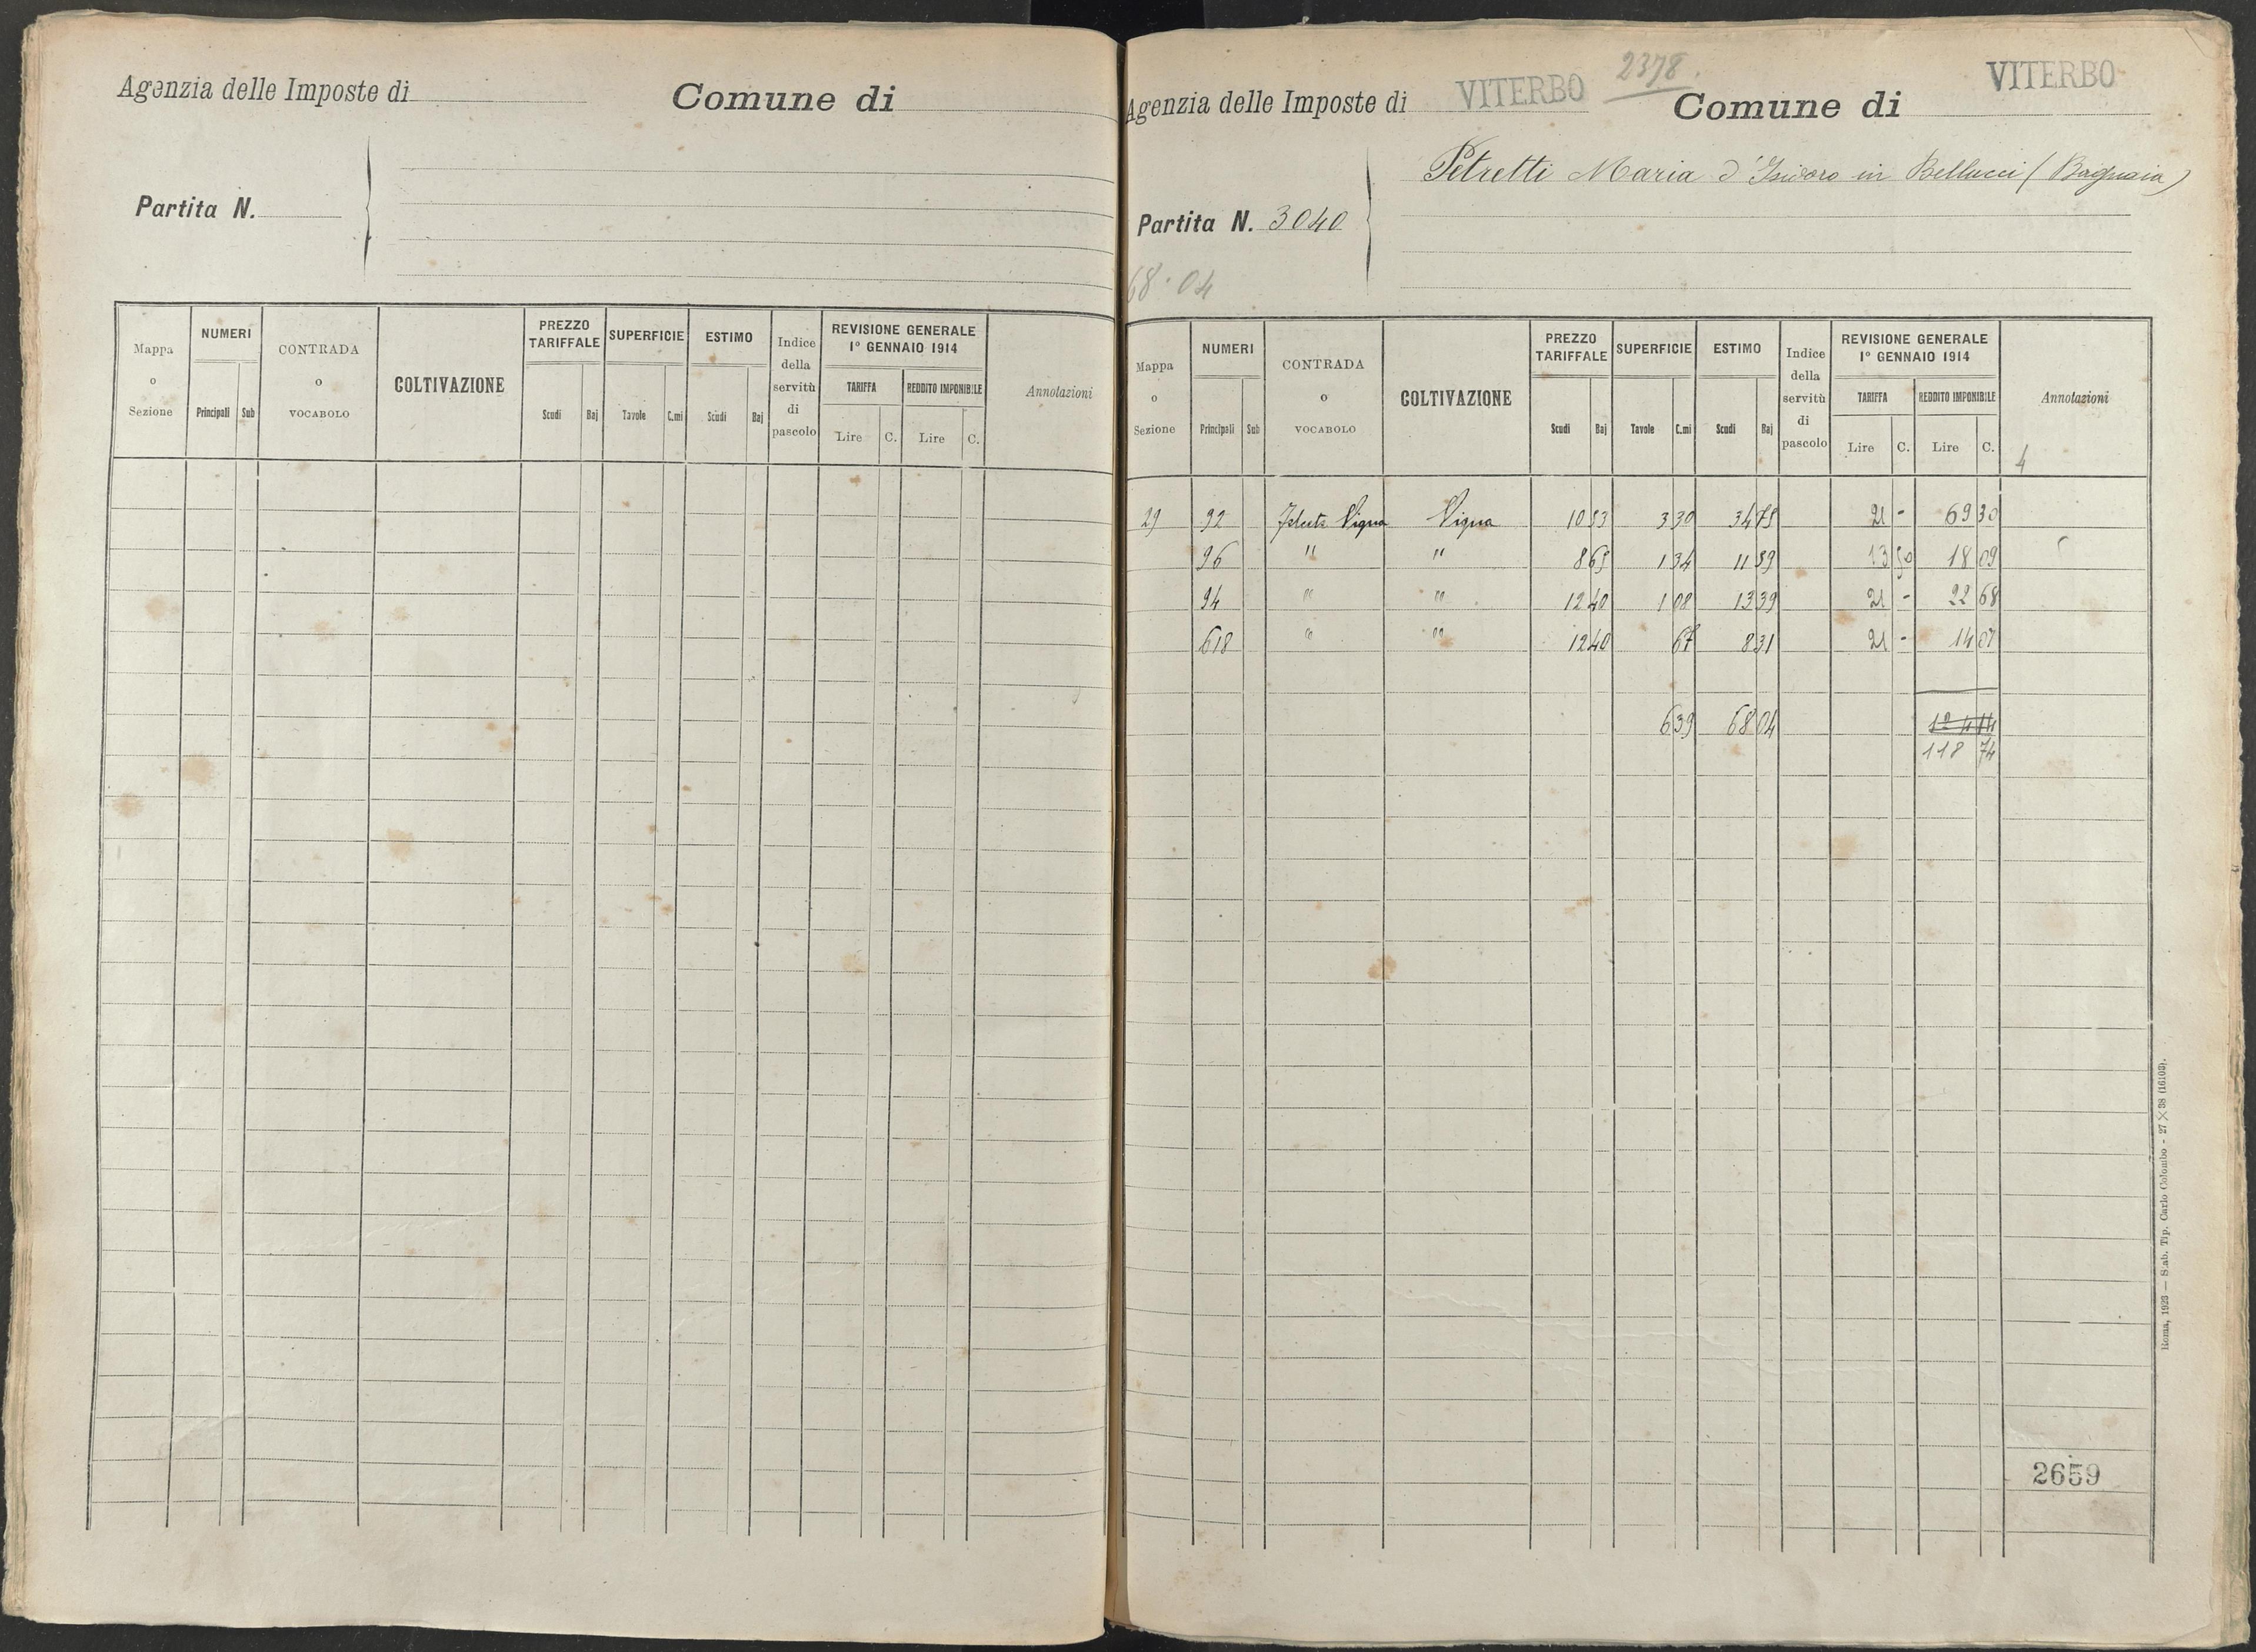 Agenzia delle Imposte di
Comune di
Partita N.
Mappa o Sezione
NUMERI
Principali Sub
CONTRADA o VOCABOLO
COLTIVAZIONE
PREZZO TARIFFALE
Scudi Baj
SUPERFICIE
Tavole C.mi
ESTIMO
Scudi Baj
Indice della servitù di pascolo
REVISIONE GENERALE
1° GENNAIO 1914
TARIFFA REDDITO IMPONIBILE
Lire C. Lire C.
Annotazioni
2378.
Agenzia delle Imposte di VITERBO
Comune di VITERBO
Petretti Maria d'Isidoro in Bellucci (Bagnaia)
Partita N. 3040
68.04
Mappa o Sezione
NUMERI
Principali Sub
CONTRADA o VOCABOLO
COLTIVAZIONE
PREZZO TARIFFALE
Scudi Baj
SUPERFICIE
Tavole C.mi
ESTIMO
Scudi Baj
Indice della servitù di pascolo
REVISIONE GENERALE
1° GENNAIO 1914
TARIFFA REDDITO IMPONIBILE
Lire C. Lire C.
Annotazioni
4
29 92 Vigna Vigna 10 53 3 30 34 75 21 - 69 30
96 " " 8 65 1 34 11 59 13 50 18 09
94 " " 12 40 1 08 13 39 21 - 22 68
618 " " 12 40 67 8 31 21 - 14 07
6 39 68 04 124 14
118 74
2659
Roma, 1923 — Stab. Tip. Carlo Colombo - 27 × 38 (16103).